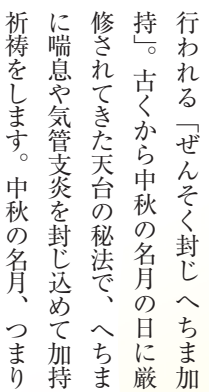 行われる「ぜんそく封じ へちま加
持」。古くから中秋の名月の日に厳
修されてきた天台の秘法で、へちま
に喘息や気管支炎を封じ込めて加持
祈祷をします。中秋の名月、つまり